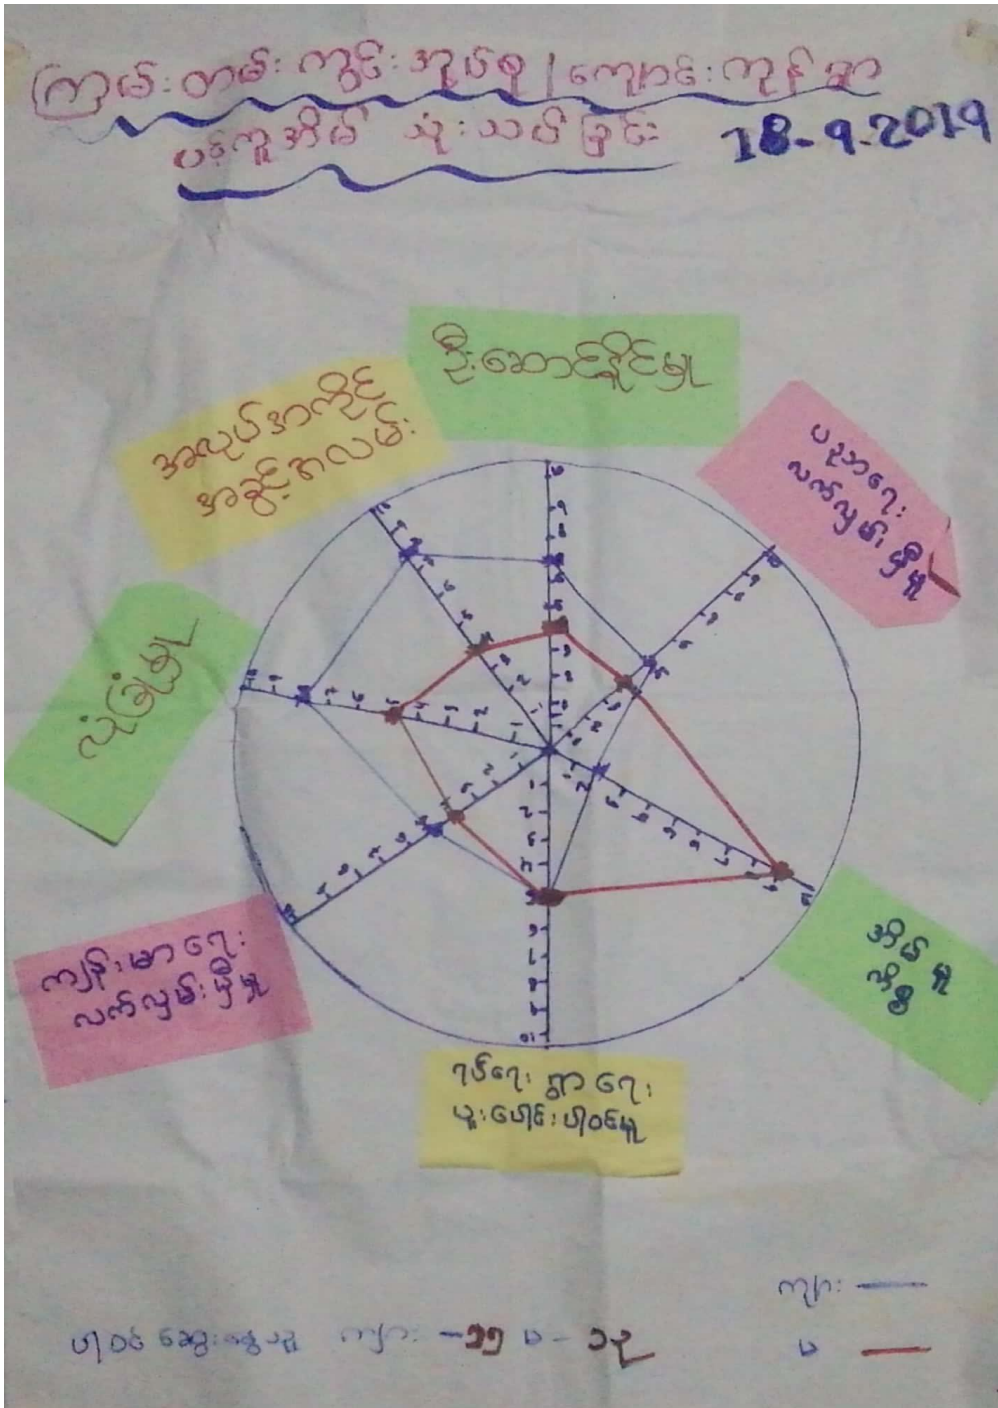 ကြမ်းတမ်းကွင်းအုပ်စု | ကျောင်းကုန်းရွာ
ပင့်ကူအိမ် သုံးသပ်ခြင်း 18-9-2019
ဦးဆောင်နိုင်မှု
အလုပ်အကိုင်
အခွင့်အလမ်း
ပညာရေး
လက်လှမ်းမှီမှု
လုံခြုံမှု
အိမ်မှု
ကိစ္စ
ကျန်းမာရေး
လက်လှမ်းမှီမှု
ရပ်ရေးရွာရေး
ပူးပေါင်းပါဝင်မှု
ကျား
ပါဝင်ဆွေးနွေးသူ ကျား - ၁၅ မ - ၁၃
မ